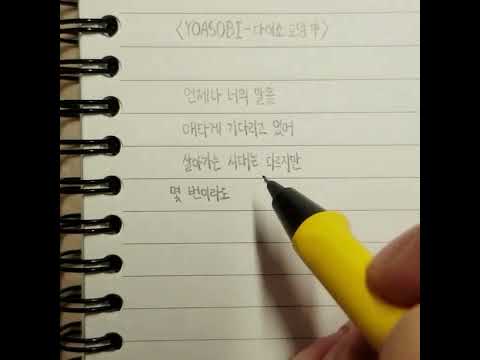 〈YOASOBI - 다이쇼 로망 中〉
언제나 너의 말을
애타게 기다리고 있어
살아가는 시대는 다르지만
몇 번이라도